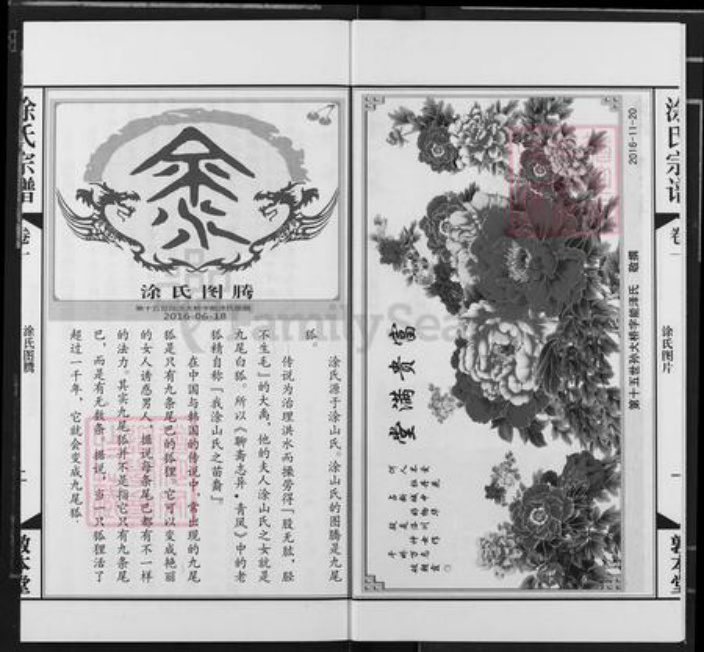 涂氏宗谱
卷一
涂氏图片
一
敦本堂
2016-11-20
第十五世孙大桥字能泽氏 敬撰
富贵满堂
涂氏图腾
2016-06-18
涂氏源于涂山氏。涂山氏的图腾是九尾
狐。
传说为治理洪水而操劳得『股无肱，胫
不生毛』的大禹，他的夫人涂山氏之女就是
九尾白狐。所以《聊斋志异·青凤》中的老
狐精自称『我涂山氏之苗裔』。
在中国与韩国的传说中，常出现的九尾
狐是只有九条尾巴的狐狸。它可以变成艳丽
的女人诱惑男人，据说每条尾巴都有不一样
的法力。其实九尾狐并不是指它只有九条尾
巴，而是有无数条。据说，当一只狐狸活了
超过一千年，它就会变成九尾狐。
涂氏宗谱
卷一
涂氏图腾
二
敦本堂
FamilySearch